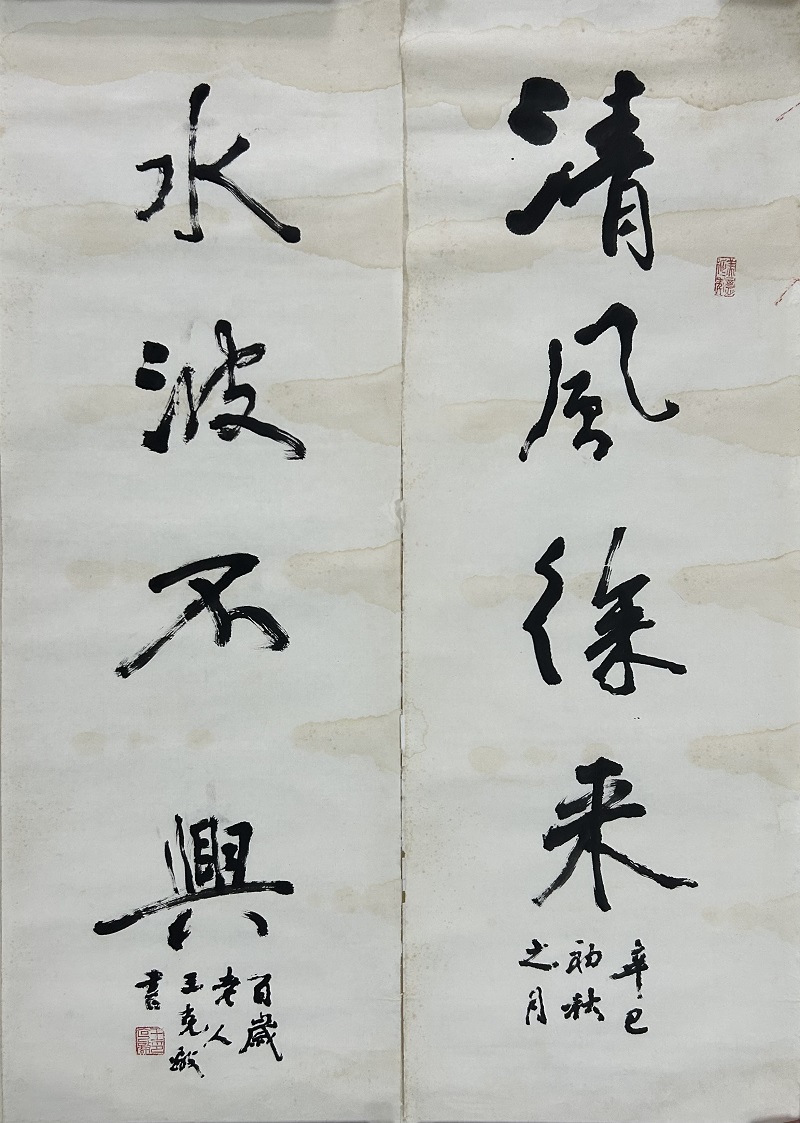 清風徐来
辛巳
初秋
之月
水波不興
百歲
老人
王克敏
書